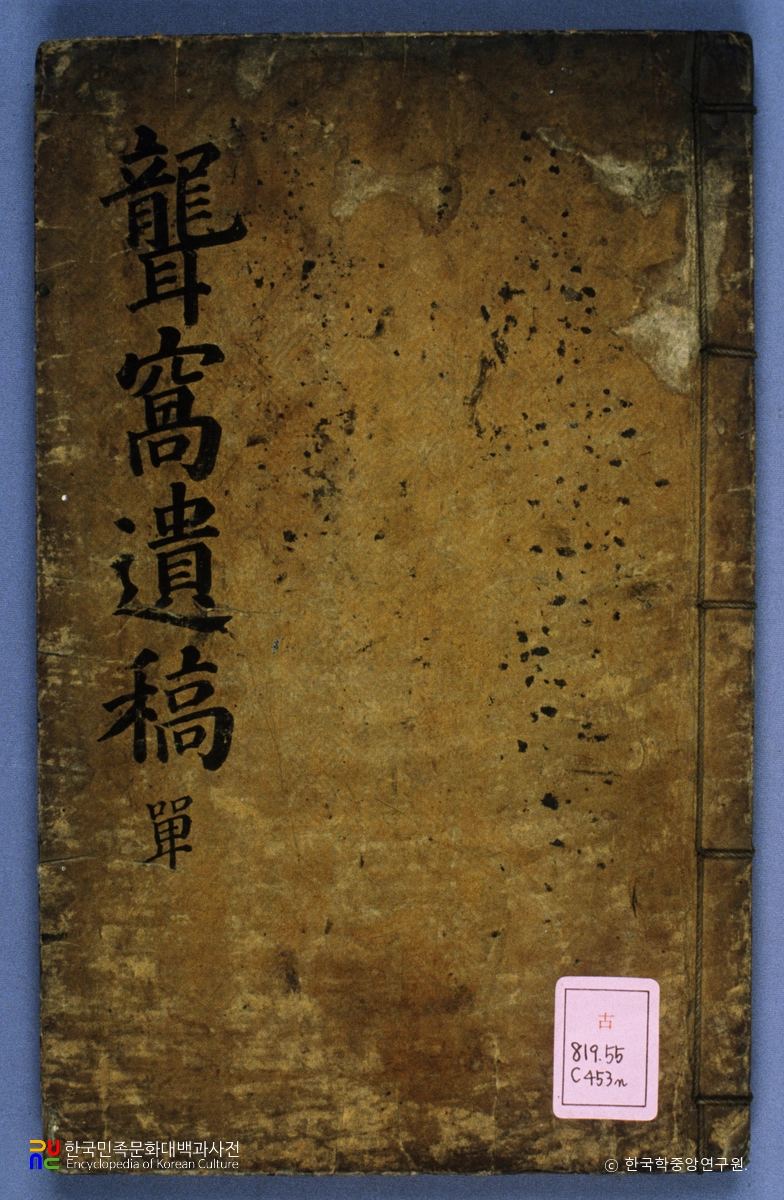 聾窩遺稿 單
古
819.55
C453n
한국민족문화대백과사전
Encyclopedia of Korean Culture
© 한국학중앙연구원.